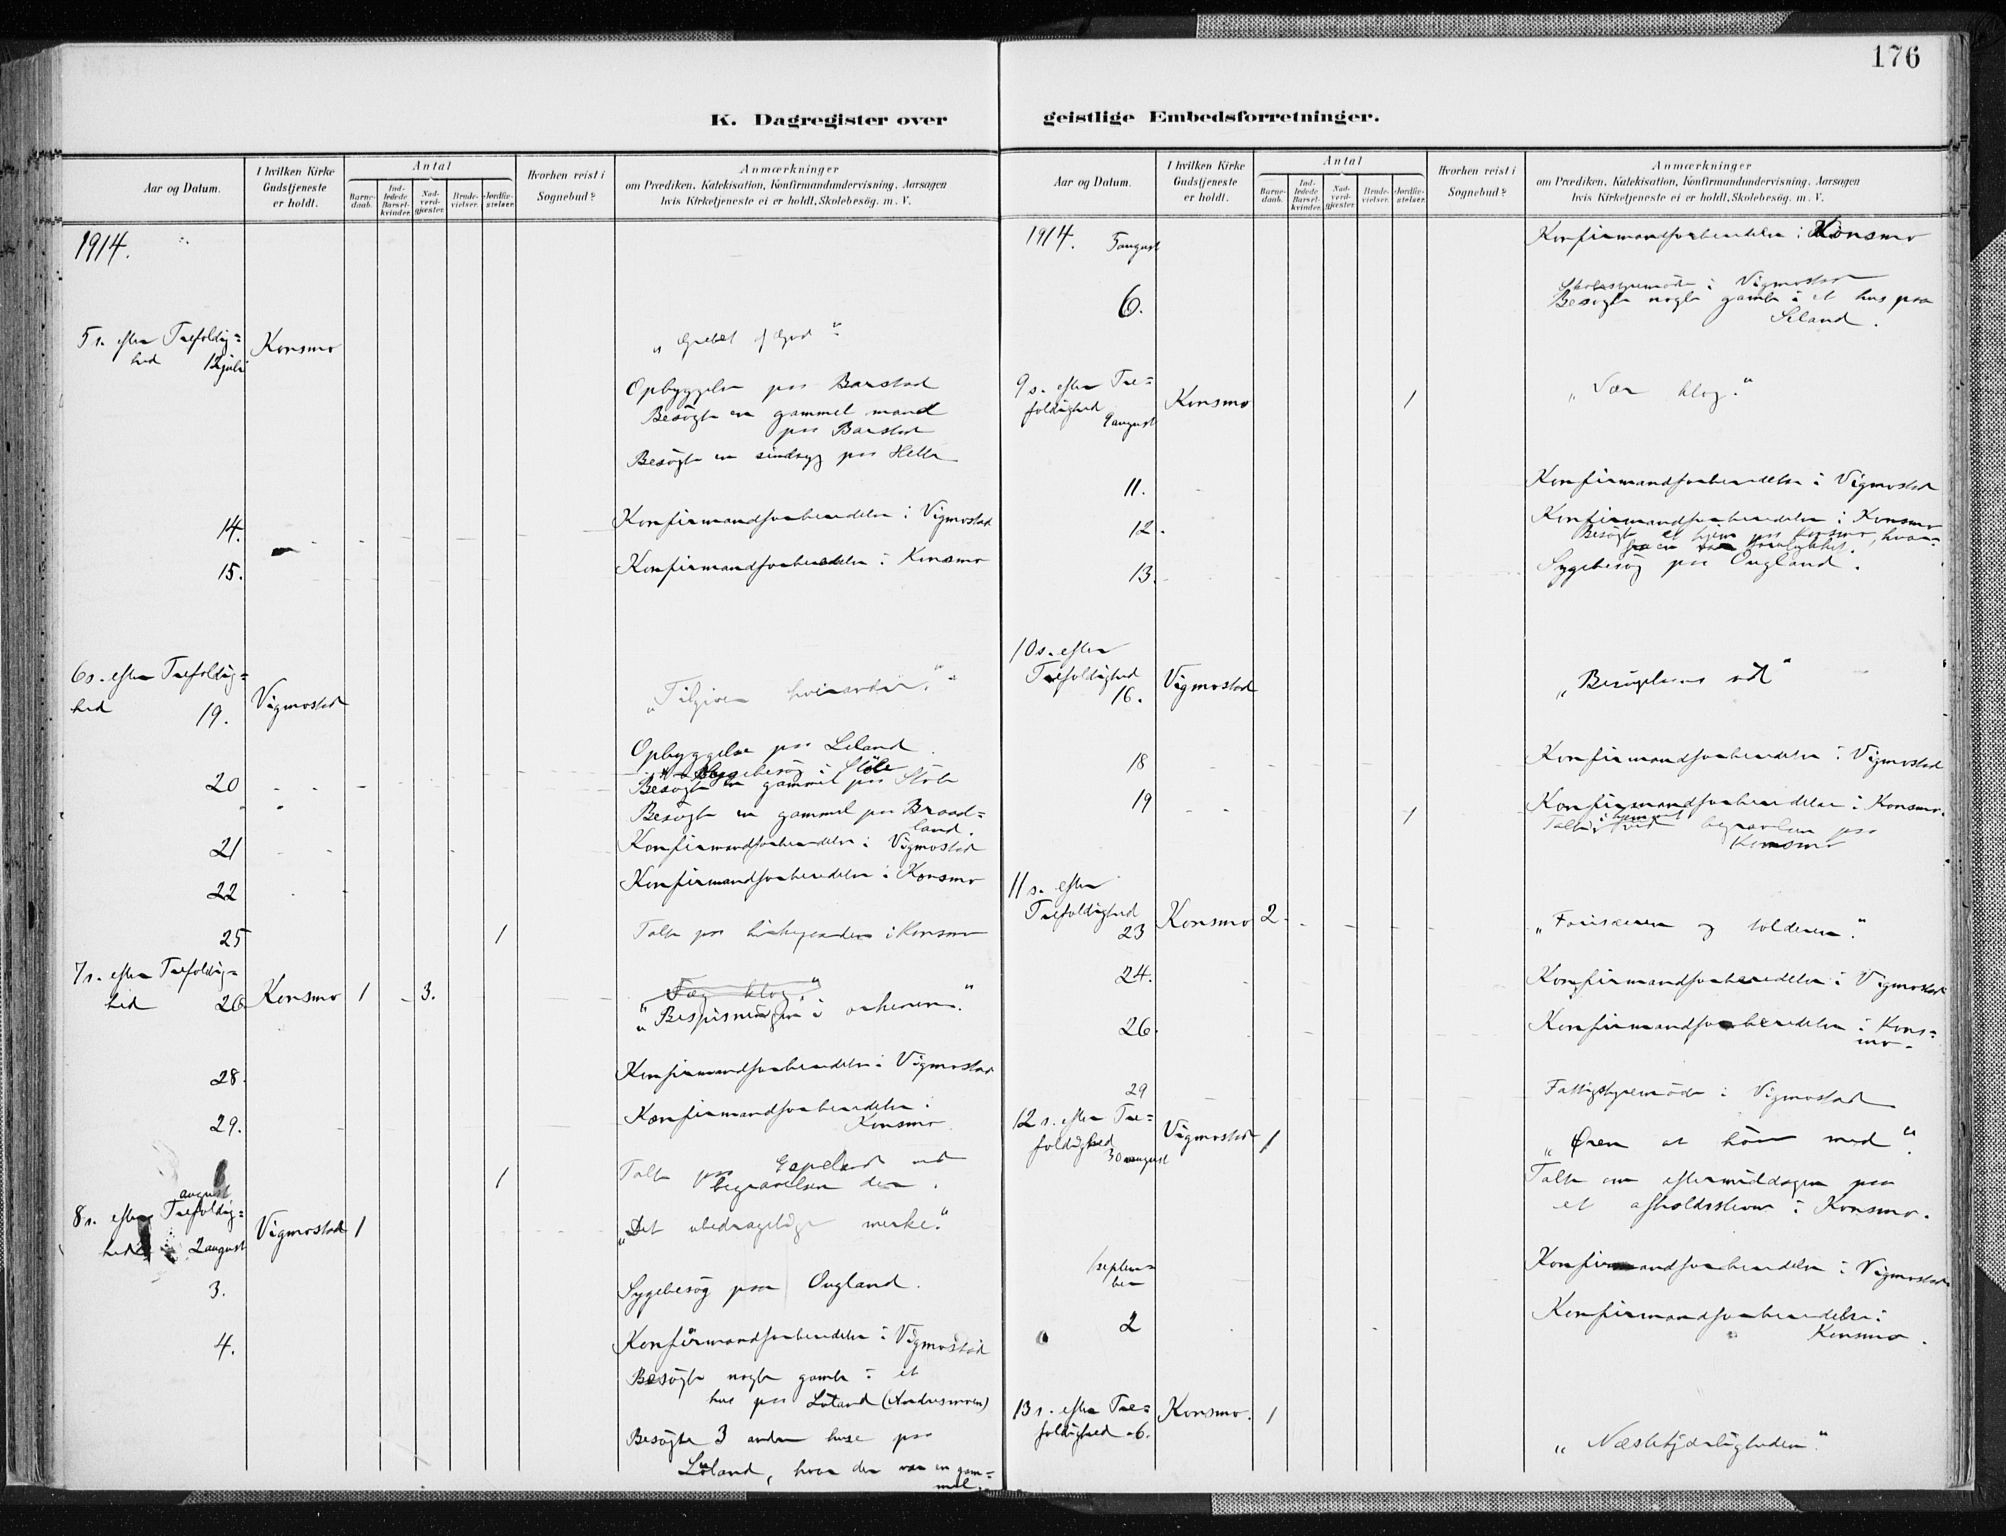 176
K. Dagregister over
geistlige Embedsforretninger.
Aar og Datum.
I hvilken Kirke
Gudstjeneste
er holdt.
Antal
Barne-
daab.
Ind-
ledede
Barsel-
kvinder.
Nad-
verd-
gjæster.
Brude-
vielser.
Jordfæ-
stelser.
Hvorhen reist i
Sognebud?
Anmærkninger
om Prædiken, Katekisation, Konfirmandundervisning, Aarsagen
hvis Kirketjeneste ei er holdt, Skolebesög, m. V.
1914.
5 s. efter Trefoldig=
hed 12 juli
Konsmo
" Grebet af Gud "
Opbyggelse paa Barstad
Besögte en gammel mand
paa Barstad
Besögte en sindsyg paa Helle
14.
Konfirmandforberedelse i Vigmostad
15.
Konfirmandforberedelse i Konsmo
6 s. efter Trefoldig=
hed 19.
Vigmostad
" Tilgiver hverandre. "
Opbyggelse paa Leland.
20
Sygebesög i Stöle
Besögte en gammel paa Stöle
Besögte en gammel paa Braad=
land.
21
Konfirmandforberedelse i Vigmostad
22
Konfirmandforberedelse i Konsmo
25
1
Talte paa i Konsmo
7 s. efter Trefoldig=
hed 26
Konsmo
1
3.
Vær klog."
" Bespisningen i örkenen."
28.
Konfirmandforberedelse i Vigmostad
29.
Konfirmandforberedelse i
Konsmo
1
august
1
Talte paa Espeland ved
begravelsen der.
8 s. efter Trefoldig=
hed 2 august
Vigmostad
1
" Det ubedragelige merke."
3.
Sygebesög paa Ougland.
4.
Konfirmandforberedelse i Vigmostad
Besögte nogle gamle i et
hus paa Löland (Andersmoen)
Besögte 3 andre huse paa
Löland, hvor der var en gam=
mel.
Aar og Datum.
I hvilken Kirke
Gudstjeneste
er holdt.
Antal
Barne-
daab.
Ind-
ledede
Barsel-
kvinder.
Nad-
verd-
gjæster.
Brude-
vielser.
Jordfæ-
stelser.
Hvorhen reist i
Sognebud?
Anmærkninger
om Prædiken, Katekisation, Konfirmandundervisning, Aarsagen
hvis Kirketjeneste ei er holdt, Skolebesög, m. V.
1914. 5 august
Konfirmandforberedelse i Konsmo
6.
Skolestyremöde i Vigmostad
Besögte nogle gamle i et hus paa
Leland.
9 s. efter Tre=
foldighed
9 august
Konsmo
1
" Vær klog."
11.
Konfirmandforberedelse i Vigmostad
12.
Konfirmandforberedelse i Konsmo
Besögte et hjem paa Konsmo, hvor=
fra en var forulykket.
13.
Sygebesög paa Ougland.
10 s. efter
Trefoldighed
16.
Vigmostad
" Besögelsens tid "
18
Konfirmandforberedelse i Vigmostad
19
1
Konfirmandforberedelse i Konsmo.
Talte i hjemmet ved begravelsen paa
Konsmo
11 s. efter
Trefoldighed
23
Konsmo
2
" Farisæeren og tolderen."
24.
Konfirmandforberedelse i Vigmostad
26.
Konfirmandforberedelse i Kons=
mo.
29
Fattigstyremöde i Vigmostad
12 s. efter Tre=
foldighed
30 august
Vigmostad
1
" Øren at höre med ".
Talte om eftermiddagen paa
et afholdsstevne i Konsmo.
1 septem=
ber
Konfirmandforberedelse i Vigmostad
2
Konfirmandforberedelse i
Konsmo.
13 s. efter Tre=
foldighed 6.
Konsmo.
1
" Næstekjærligheden."